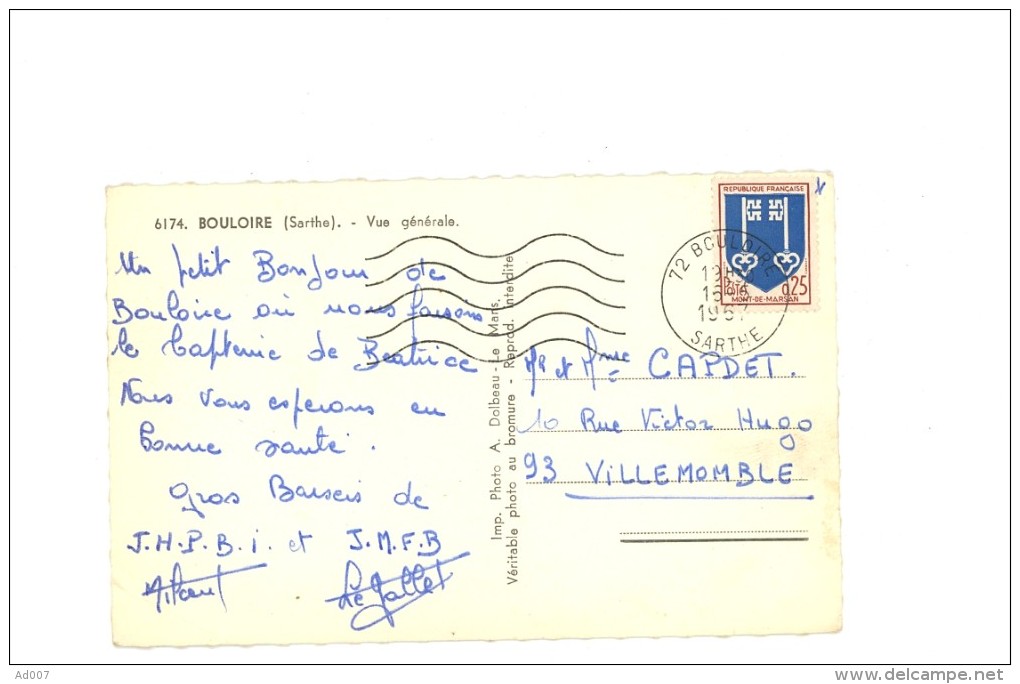 6174. BOULOIRE (Sarthe). - Vue générale.
Un petit Bonjour de
Bouloire où nous faisons
le Bapteme de Beatrice
Nous Vous esperons en
bonne santé.
Gros Baisers de
J.H.P.B.i. et J.M.F.B
Le Gallet
Imp. Photo A. Dolbeau - Le Mans.
Véritable photo au bromure - Reprod. interdite
REPUBLIQUE FRANÇAISE
POSTES 0,25
MONT-DE-MARSAN
72 BOULOIRE
19H30
1967
SARTHE
Mr et Mme CAPDET.
10 Rue Victor Hugo
93 ViLLEMOMBLE
Ad007
www.delcampe.net